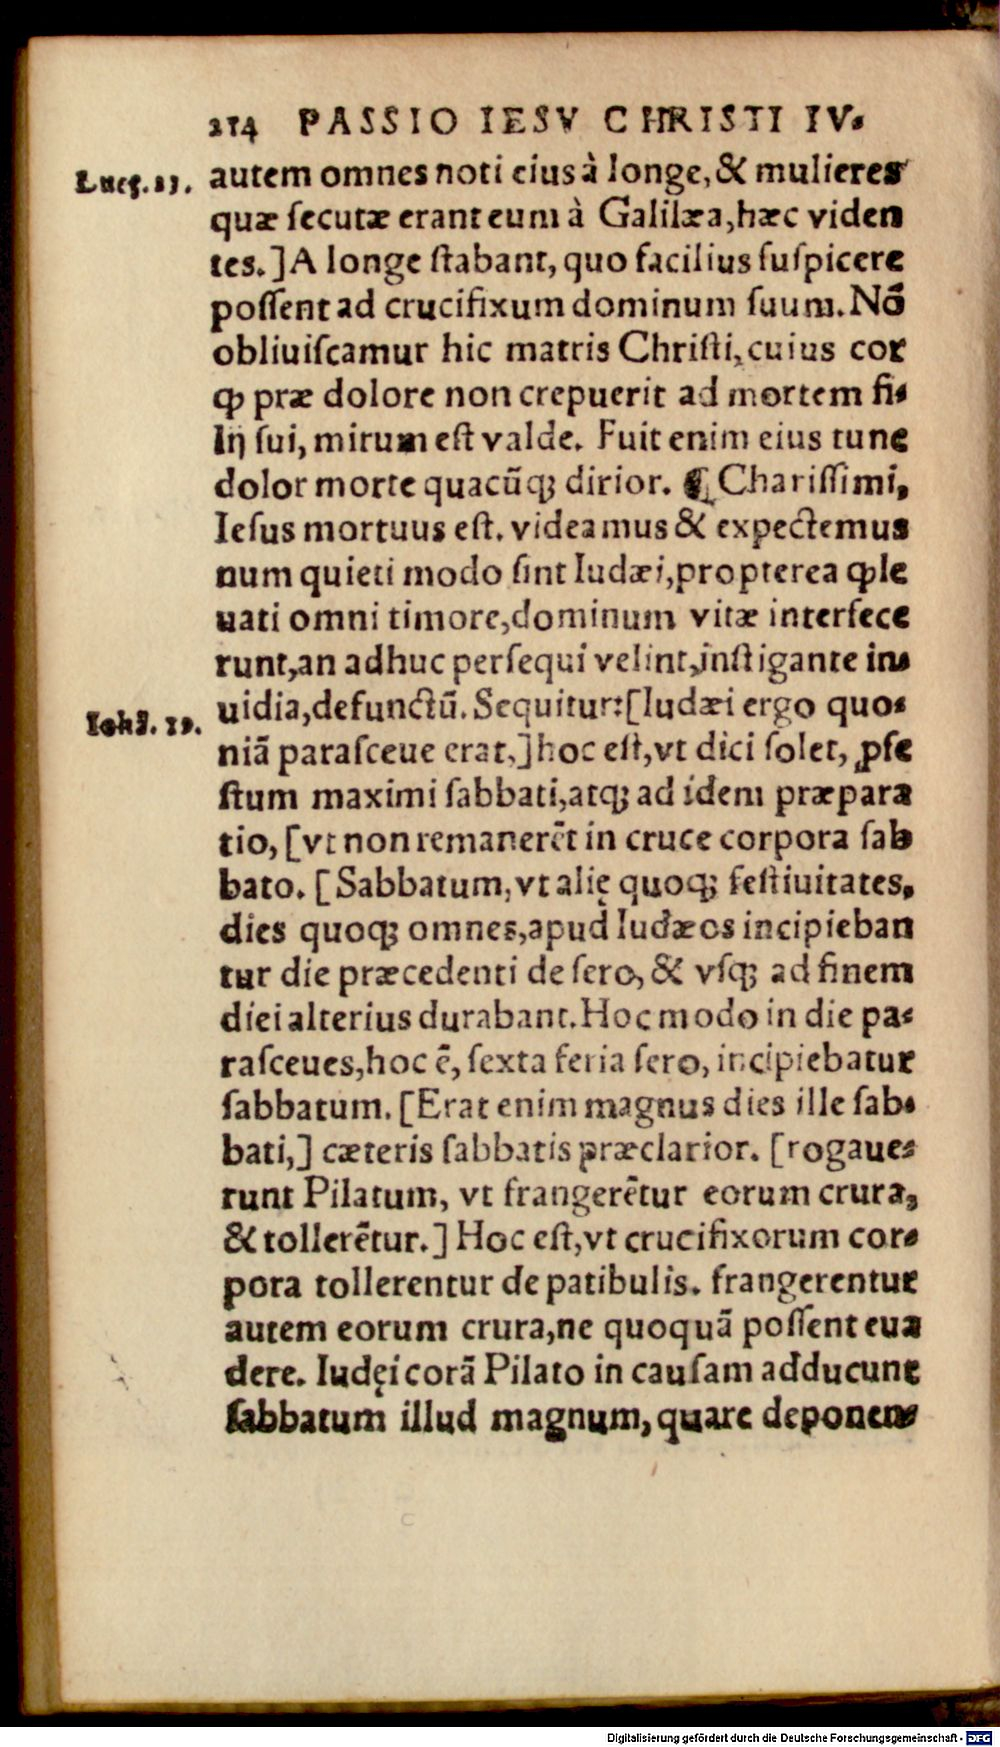 214 PASSIO IESV CHRISTI IV.
Lucę. 23.
autem omnes noti eius à longe, & mulieres
quæ ſecutæ erant eum à Galilæa, hæc viden
tes.] A longe ſtabant, quo facilius ſuſpicere
poſſent ad crucifixum dominum ſuum. Nõ
obliuiſcamur hic matris Chriſti, cuius cor
ꝙ præ dolore non crepuerit ad mortem fi-
lij ſui, mirum eſt valde. Fuit enim eius tunc
dolor morte quacũq; dirior. ¶ Chariſſimi,
Ieſus mortuus eſt. videamus & expectemus
num quieti modo ſint Iudæi, propterea ꝙ le
uati omni timore, dominum vitæ interfece
runt, an adhuc perſequi velint, inſtigante in-
uidia, defunctũ. Sequitur: [Iudæi ergo quo-
Iohã. 19.
niã paraſceue erat,] hoc eſt, vt dici ſolet, ꝓfe
ſtum maximi ſabbati, atq; ad idem præpara
tio, [vt non remanerẽt in cruce corpora ſab
bato. [Sabbatum, vt alię quoq; feſtiuitates,
dies quoq; omnes, apud Iudæos incipieban
tur die præcedenti de ſero, & vſq; ad finem
diei alterius durabant. Hoc modo in die pa-
raſceues, hoc ẽ, ſexta feria ſero, incipiebatur
ſabbatum. [Erat enim magnus dies ille ſab-
bati,] cæteris ſabbatis præclarior. [rogaue-
runt Pilatum, vt frangerẽtur eorum crura,
& tollerẽtur.] Hoc eſt, vt crucifixorum cor-
pora tollerentur de patibulis. frangerentur
autem eorum crura, ne quoquã poſſent eua
dere. Iudęi corã Pilato in cauſam adducunt
ſabbatum illud magnum, quare deponen-
Digitalisierung gefördert durch die Deutsche Forschungsgemeinschaft - DFG